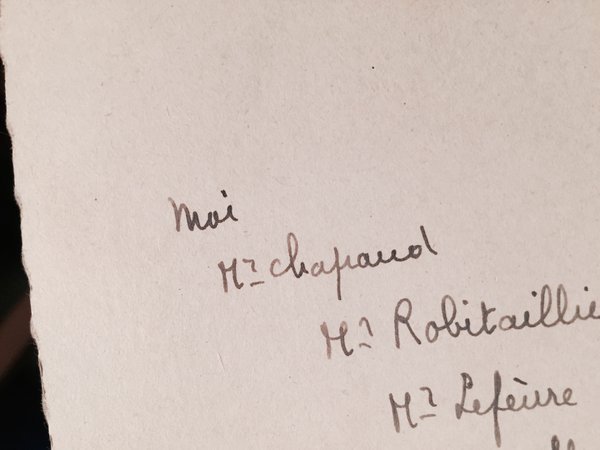 Moi
Mr chapaud
Mr Robitaillie
Mr Lefèvre